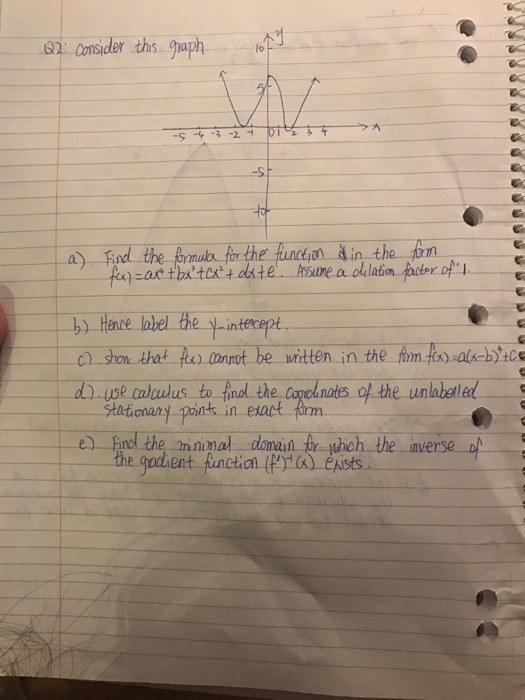 Q2: consider this graph
y
10
5
-5 -4 -3 -2 -1 0 1 2 3 4 x
-5
-10
a) Find the formula for the function in the form
f(x)=ax⁴+bx³+cx²+dx+e. Assume a dilation factor of 1.
b) Hence label the y-intercept.
c) show that f(x) cannot be written in the form f(x)=a(x-b)⁴+c
d) use calculus to find the coordinates of the unlabelled
stationary points in exact form.
e) Find the minimal domain for which the inverse of
the gradient function (f')⁻¹(x) exists.